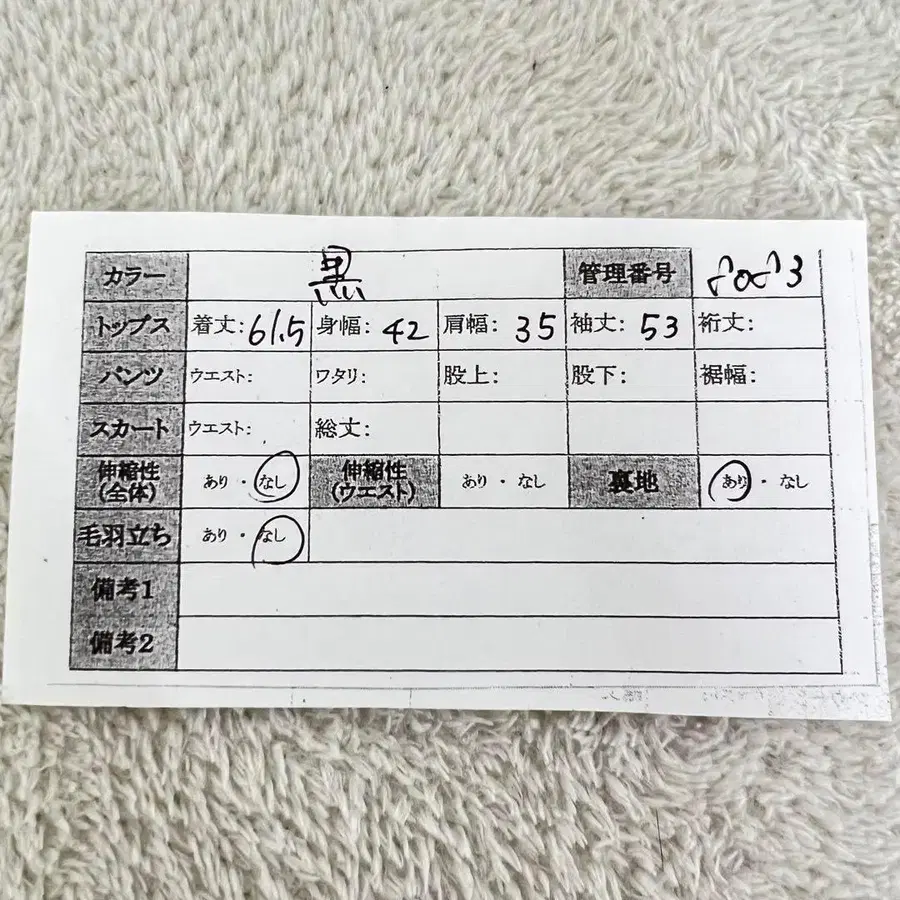 カラー 黒 管理番号 8083
トップス 着丈: 61.5 身幅: 42 肩幅: 35 袖丈: 53 裄丈:
パンツ ウエスト: ワタリ: 股上: 股下: 裾幅:
スカート ウエスト: 総丈:
伸縮性 (全体) あり・なし 伸縮性 (ウエスト) あり・なし 裏地 あり・なし
毛羽立ち あり・なし
備考1
備考2